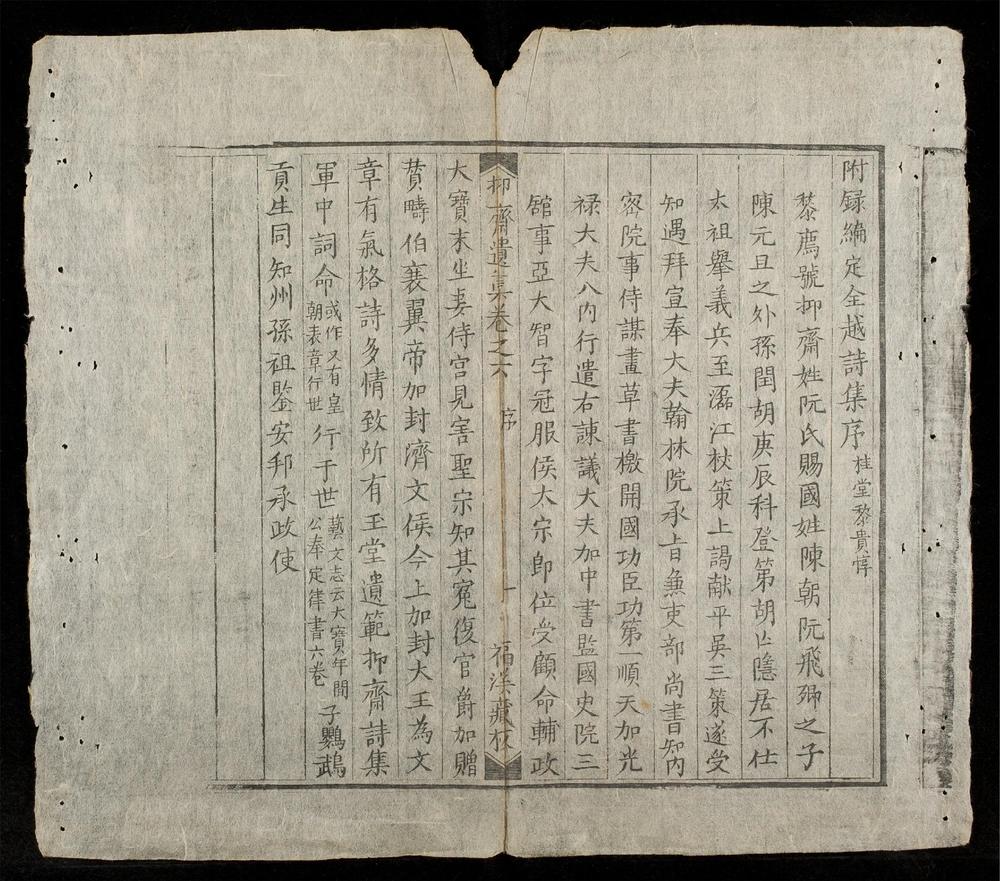 附録編定全越詩集序 桂堂黎貴惇
黎廌號抑齋姓阮氏賜國姓陳朝阮飛卿之子
陳元旦之外孫閏胡庚辰科登第胡亡隱居不仕
太祖舉義兵至㵢江杖策上謁献平吳三策遂受
知遇拜宣奉大夫翰林院承旨兼吏部尚書知內
密院事侍謀畫草書檄開國功臣功第一順天加光
禄大夫入內行遣右諫議大夫加中書監國史院三
舘事亞大智字冠服侯太宗即位受顧命輔政
抑齋遺集卷之六 序 一 福溪藏板
大寶末坐妻侍宮見害聖宗知其寃復官爵加贈
賛疇伯襄翼帝加封濟文侯今上加封大王為文
章有氣格詩多情致所有玉堂遺範抑齋詩集
軍中詞命 或作又有皇朝表章行世 行于世 藝文志云大寶年間公奉定律書六卷 子鸚鵡
貢生同知州孫祖鑒安邦承政使